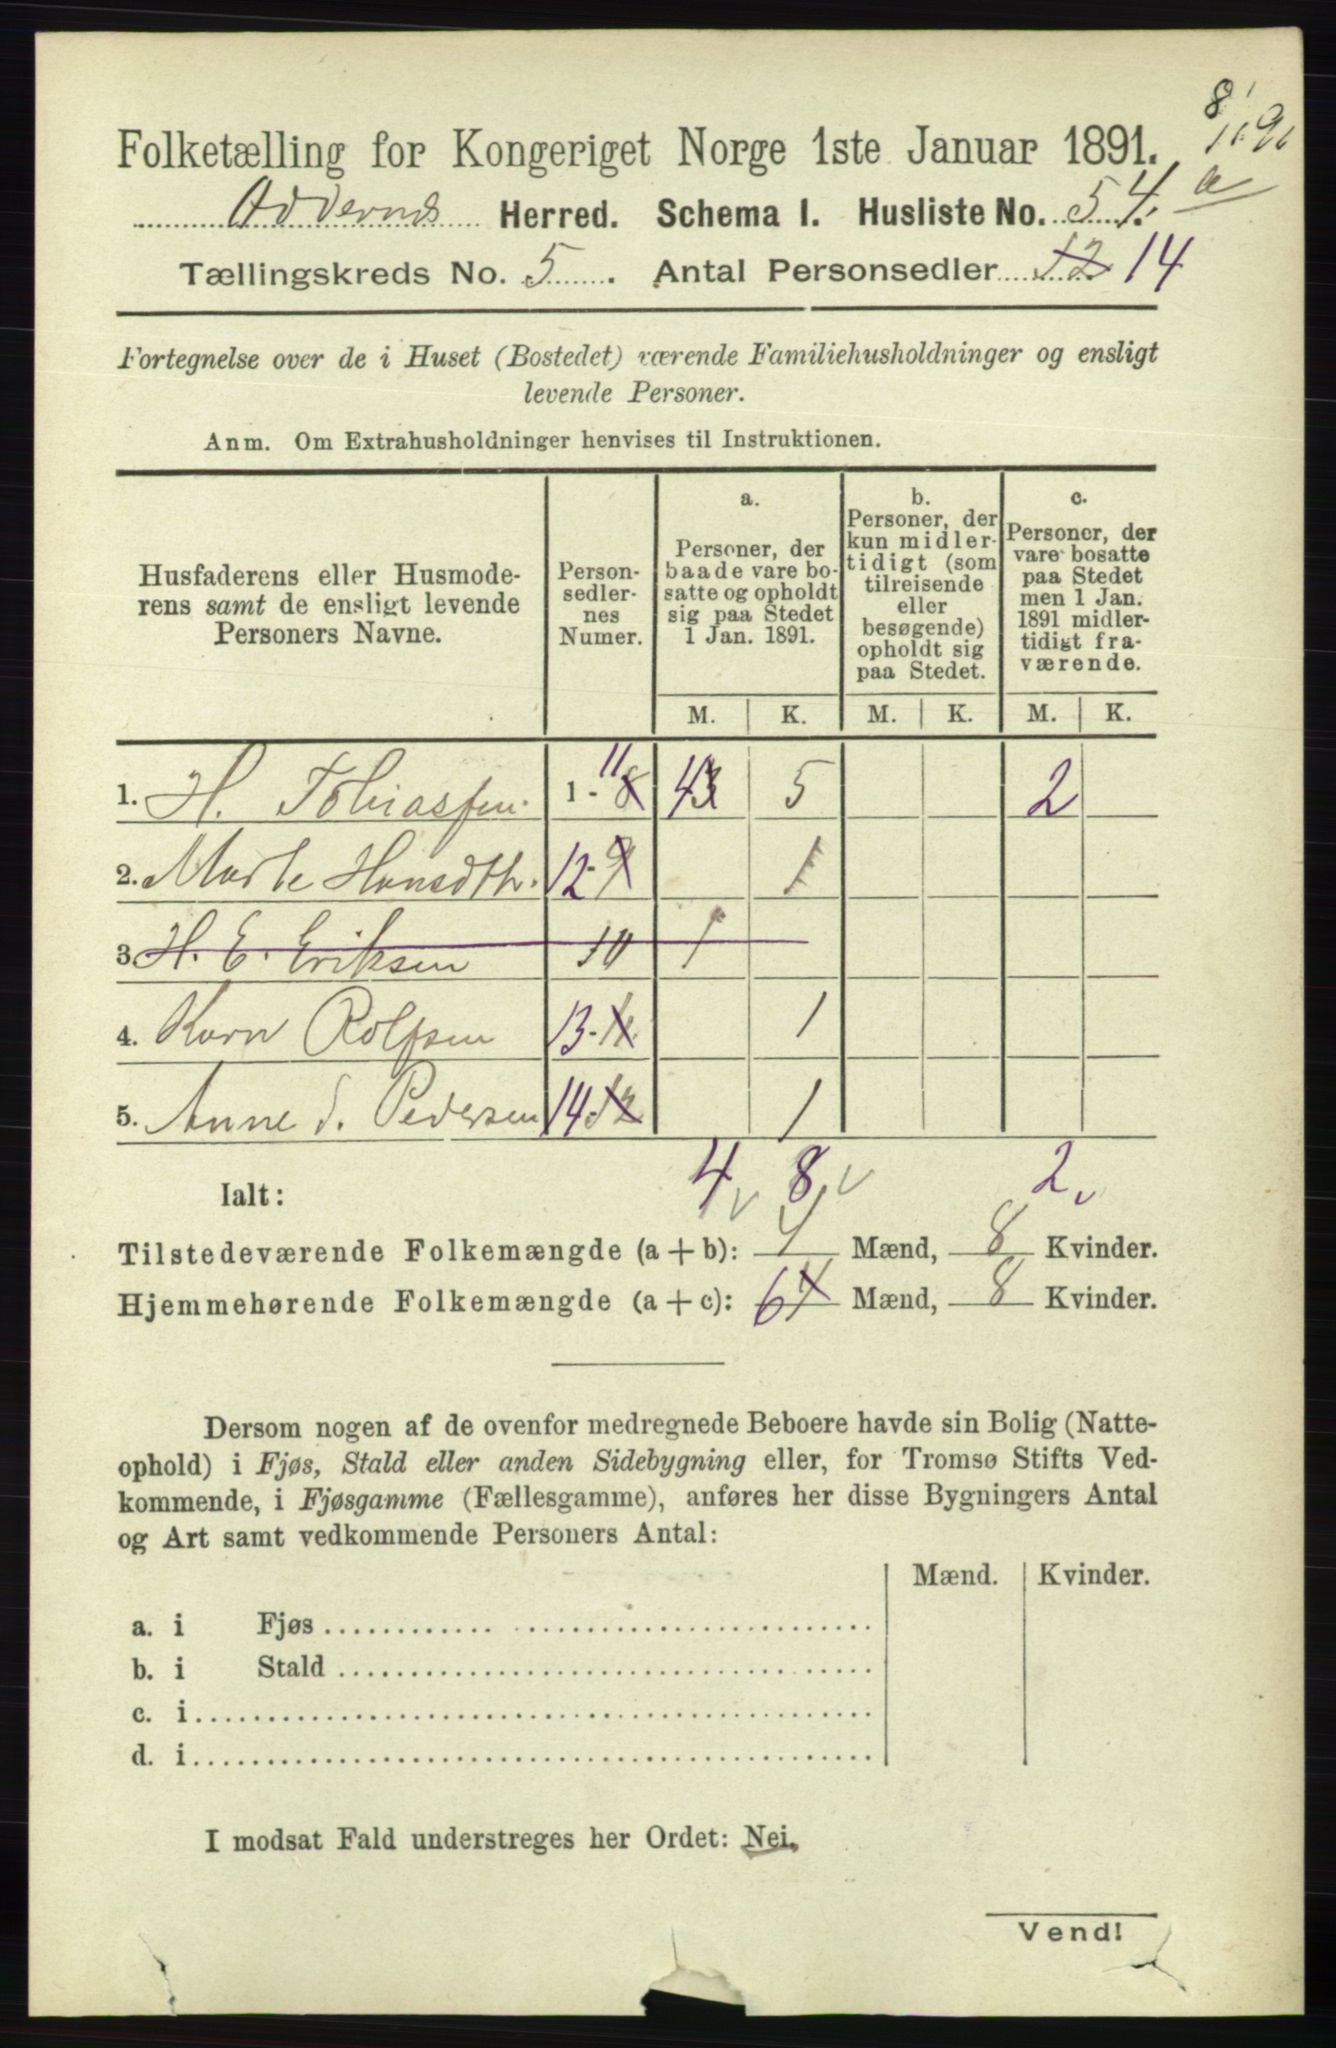 Folketælling for Kongeriget Norge 1ste Januar 1891.
Oddernes Herred. Schema I. Husliste No. 54. a
Tællingskreds No. 5. Antal Personsedler 12 14
Fortegnelse over de i Huset (Bostedet) værende Familiehusholdninger og ensligt
levende Personer.
Anm. Om Extrahusholdninger henvises til Instruktionen.
Husfaderens eller Husmode-
rens samt de ensligt levende
Personers Navne.
Person-
sedler-
nes
Numer.
a.
Personer, der
baade vare bo-
satte og opholdt
sig paa Stedet
1 Jan. 1891.
b.
Personer, der
kun midler-
tidigt (som
tilreisende
eller
besøgende)
opholdt sig
paa Stedet.
c.
Personer, der
vare bosatte
paa Stedet
men 1 Jan.
1891 midler-
tidigt fra-
værende.
M. K. M. K. M. K.
1. H. Tobiassen. 1 - 8 11 4 3 5 2
2. Marte Hansdth. 12 - 9 1
3 H. E. Eriksen 10 1
4. Karn Rolfsen 13 - 11 1
5. Anne d. Pedersen 14 12 1
Ialt: 4 8 2
Tilstedeværende Folkemængde (a + b): 4 Mænd, 8 Kvinder.
Hjemmehørende Folkemængde (a + c): 6 4 Mænd, 8 Kvinder.
Dersom nogen af de ovenfor medregnede Beboere havde sin Bolig (Natte-
ophold) i Fjøs, Stald eller anden Sidebygning eller, for Tromsø Stifts Ved-
kommende, i Fjøsgamme (Fællesgamme), anføres her disse Bygningers Antal
og Art samt vedkommende Personers Antal:
Mænd. Kvinder.
a. i Fjøs
b. i Stald
c. i
d. i
I modsat Fald understreges her Ordet: Nei.
Vend!